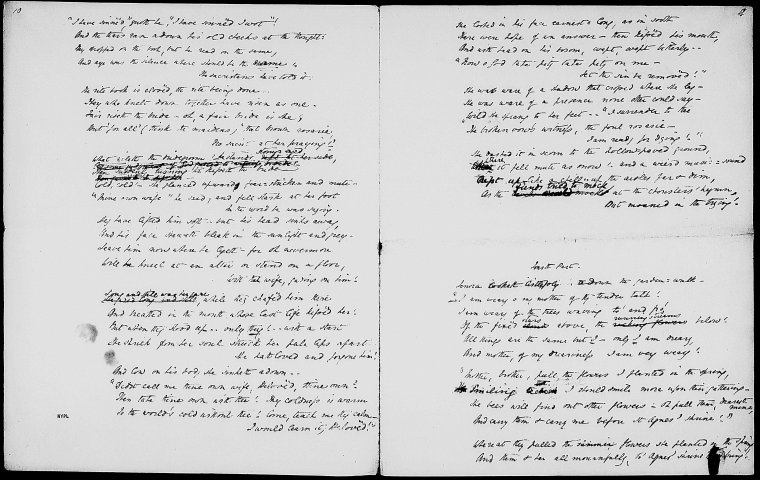 10
"I have sinned," quoth he, "I have sinned I wot"!
And the tears ran adown his old cheeks at the thought:
They dropped on the book, but he read on the same,
And aye was the silence where should be the name,
The sacristans have told it.
The rite book is closed, the rite being done—
They who knelt down together have risen as one.
Fair riseth the bride—oh, a fair bride is she;
But "for all" (think the maidens) "that brown rosarie,
No saint at her praying!"
What aileth the bridegroom?
Then
Cold, cold— he glanced upward fear-stricken and mute—
"Mine own wife" he said, and fell stark at her foot
In the word he was saying.
They have lifted him soft—but his head sinks away,
And his face sheweth bleak in the sunlight and grey—
Leave him now where he lyeth—for oh nevermore
Will he kneel at an altar or stand on a floor,
Let his wife, gazing on him!
Long and still was her gaze, while they chafed him there
And breathed in the mouth where last life kissed her:
But when they stood up— only they!— with a start
The shriek from her soul struck her pale lips apart
He hath loved and forgone him!
And low on his body she sinketh adown—
"Didst call me thine own wife, Beloved, thine own?
Then take thine own with thee! Thy coldness is warm
To the world's cold without thee! Come, teach me thy calm—
I would learn it, Beloved!"
She looked in his face earnest & long, as in sooth
There were hope of an answer— then kissed his mouth,
And with head on his bosom, wept, wept bitterly—
"Now o God take pity take pity on me—
Let the sin be removed!"
She was 'ware of a shadow that crossed where she lay—
She was 'ware of a presence none other could say—
Wild she sprang to her feet— "I surrender to thee
The broken vow's witness, the foul rosarie—
I am ready for dying!"
She dashed it in scorn to the hollow-paved ground,
Where it fell mute as snow! and a weird music-sound
Crept up, like a chill up the aisles far & dim,
As the fiends tried to mock at the choristers' hymn,
And moaned in the trying.
Fourth Part.
Onora looketh listlessly adown the garden walk—
I am weary o my mother of thy tender talk!
I am weary of the trees waving to and fro,
Of the stars above, the running streams below:
All things are the same but I— only I am dreary,
And mother, of my dreariness I am very weary!
"Mother, brother, pull the flowers I planted in the spring,
Smiling I should smile more upon their gathering—
The bees will find out other flowers— oh pull them, dearest mine,
And carry them & carry me before St Agnes' shrine!"
Whereat they pulled the summer flowers she planted in the spring
And them & her all mournfully, to Agnes' shrine did bring.